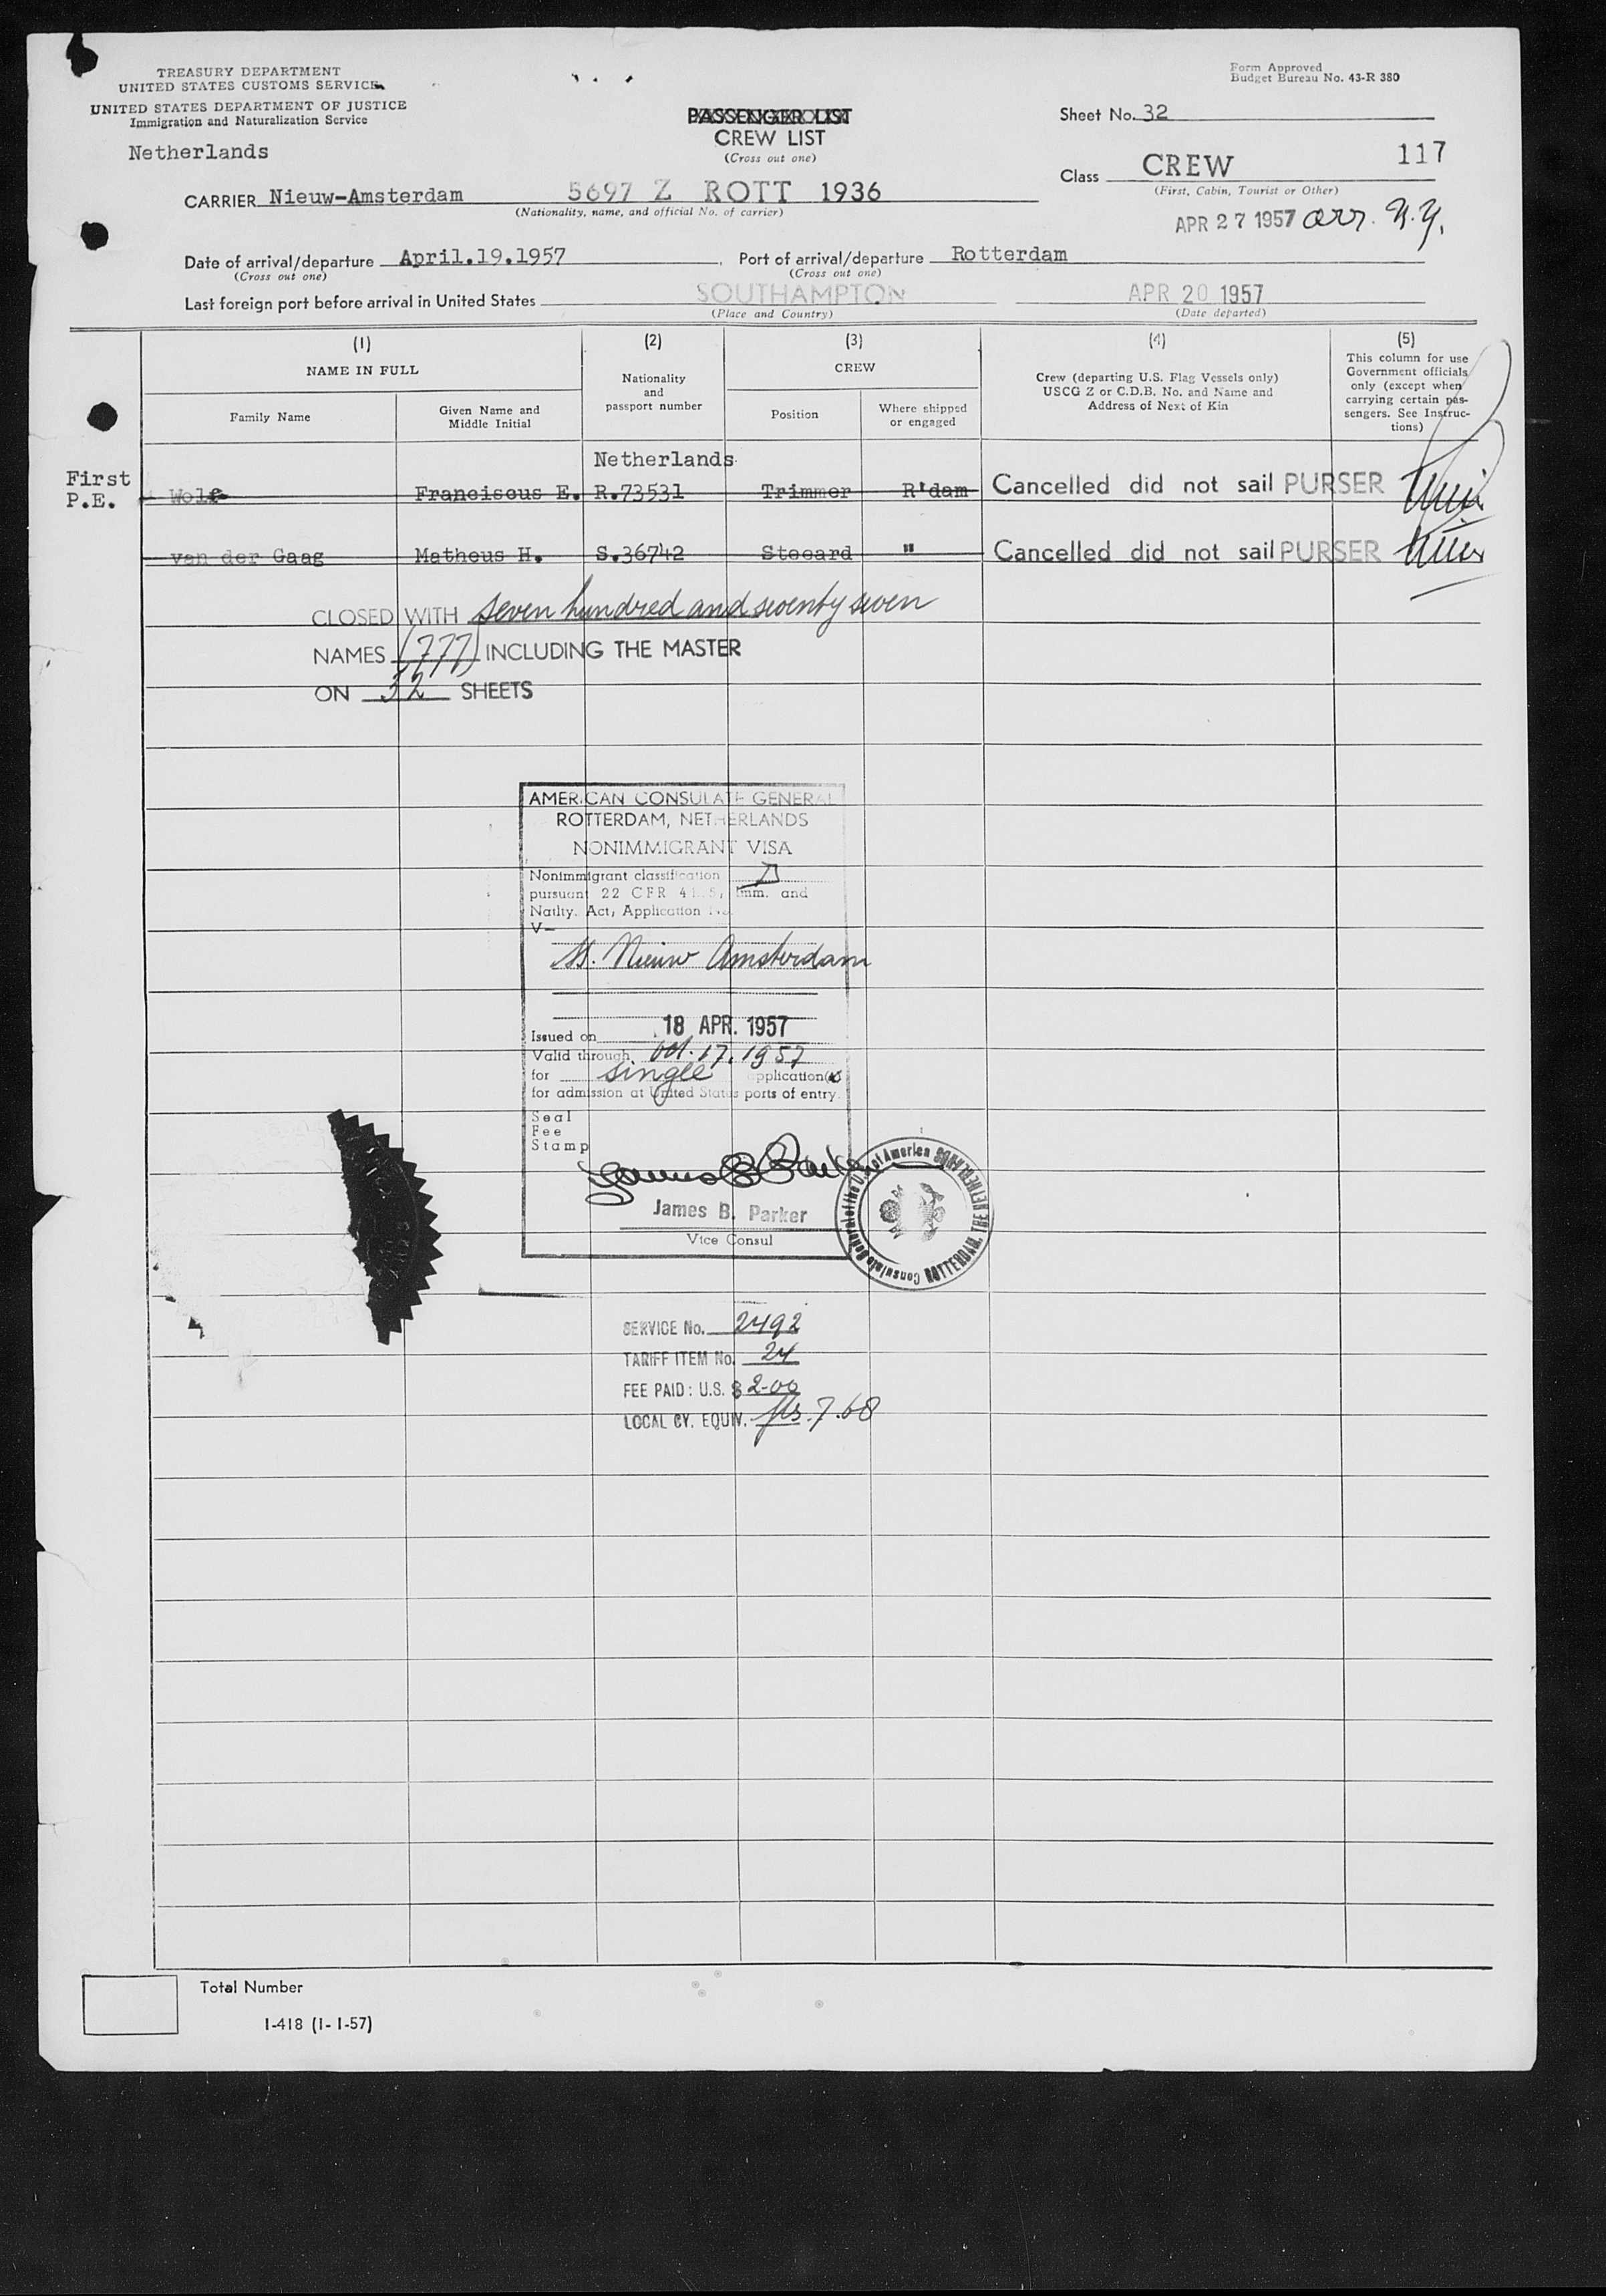 TREASURY DEPARTMENT
UNITED STATES CUSTOMS SERVICE
UNITED STATES DEPARTMENT OF JUSTICE
Immigration and Naturalization Service
Netherlands
PASSENGER LIST
CREW LIST
(Cross out one)
Form Approved
Budget Bureau No. 43-R 380
Sheet No. 32
Class CREW 117
(First, Cabin, Tourist or Other)
CARRIER Nieuw-Amsterdam 5697 Z ROTT 1936
(Nationality, name, and official No. of carrier)
APR 27 1957 arr. N.Y.
Date of arrival/departure April.19.1957, Port of arrival/departure Rotterdam
(Cross out one) (Cross out one)
Last foreign port before arrival in United States SOUTHAMPTON APR 20 1957
(Place and Country) (Date departed)
(1) (2) (3) (4) (5)
NAME IN FULL
Family Name
Given Name and
Middle Initial
Nationality
and
passport number
CREW
Position
Where shipped
or engaged
Crew (departing U.S. Flag Vessels only)
USCG Z or C.D.B. No. and Name and
Address of Next of Kin
This column for use
Government officials
only (except when
carrying certain pas-
sengers. See Instruc-
tions)
Netherlands
First
P.E.
Wolf Franciscus E. R.73531 Trimmer R'dam Cancelled did not sail PURSER
van der Gaag Matheus H. S.36742 Steeard " Cancelled did not sail PURSER
CLOSED WITH seven hundred and seventy seven
NAMES (777) INCLUDING THE MASTER
ON 32 SHEETS
AMERICAN CONSULATE GENERAL
ROTTERDAM, NETHERLANDS
NONIMMIGRANT VISA
Nonimmigrant classification D
pursuant 22 CFR 41.5, Imm. and
Natlty. Act, Application No.
V—
SS. Nieuw Amsterdam
Issued on 18 APR. 1957
Valid through Oct. 17, 1957
for single application(s)
for admission at United States ports of entry.
Seal
Fee
Stamp
James B. Parker
James B. Parker
Vice Consul
Consulate General of the U.S. of America ROTTERDAM, THE NETHERLANDS
SERVICE No. 2492
TARIFF ITEM No. 24
FEE PAID: U.S. $ 2-00
LOCAL CY. EQUIV. fls. 7.68
Total Number
I-418 (1-1-57)